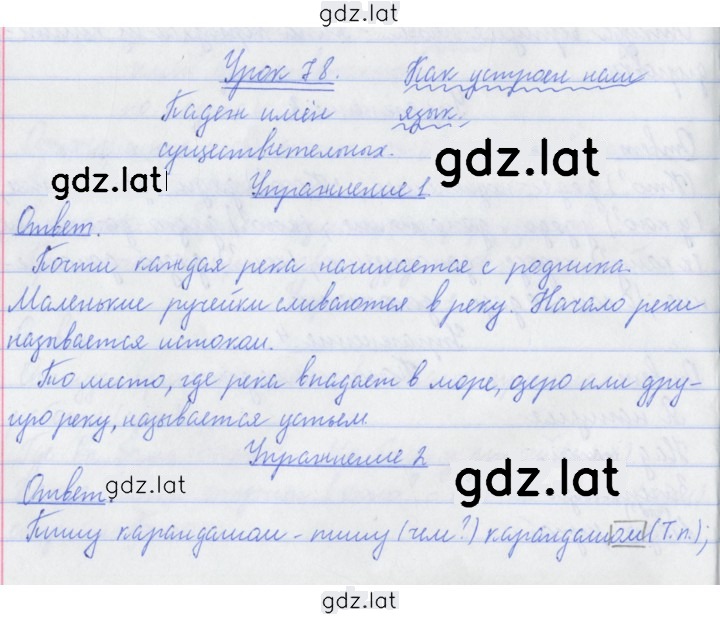 gdz.lat
Урок 78. Как устроен наш
Падеж имён язык.
существительных. gdz.lat
gdz.lat Упражнение 1
Ответ.
Почти каждая река начинается с родника.
Маленькие ручейки сливаются в реку. Начало реки
называется истоком.
То место, где река впадает в море, озеро или дру-
гую реку, называется устьем.
Упражнение 2 gdz.lat
Ответ. gdz.lat
Пишу карандашом - пишу (чем?) карандашом (Т.п.);
gdz.lat